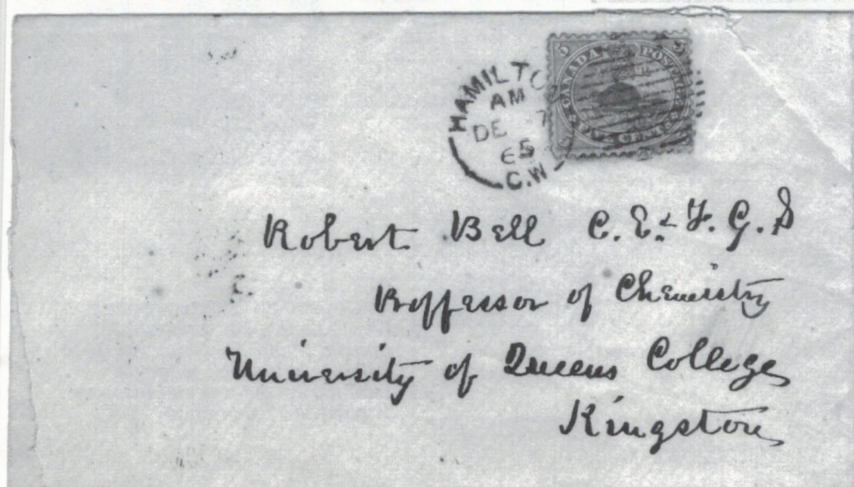 HAMILTO
AM
DE 7
65
C.W
5 CANADA POSTAGE 5
FIVE CENTS
Robert Bell C.E. & F.G.S
Proffessor of Chemistry
University of Queens College
Kingston